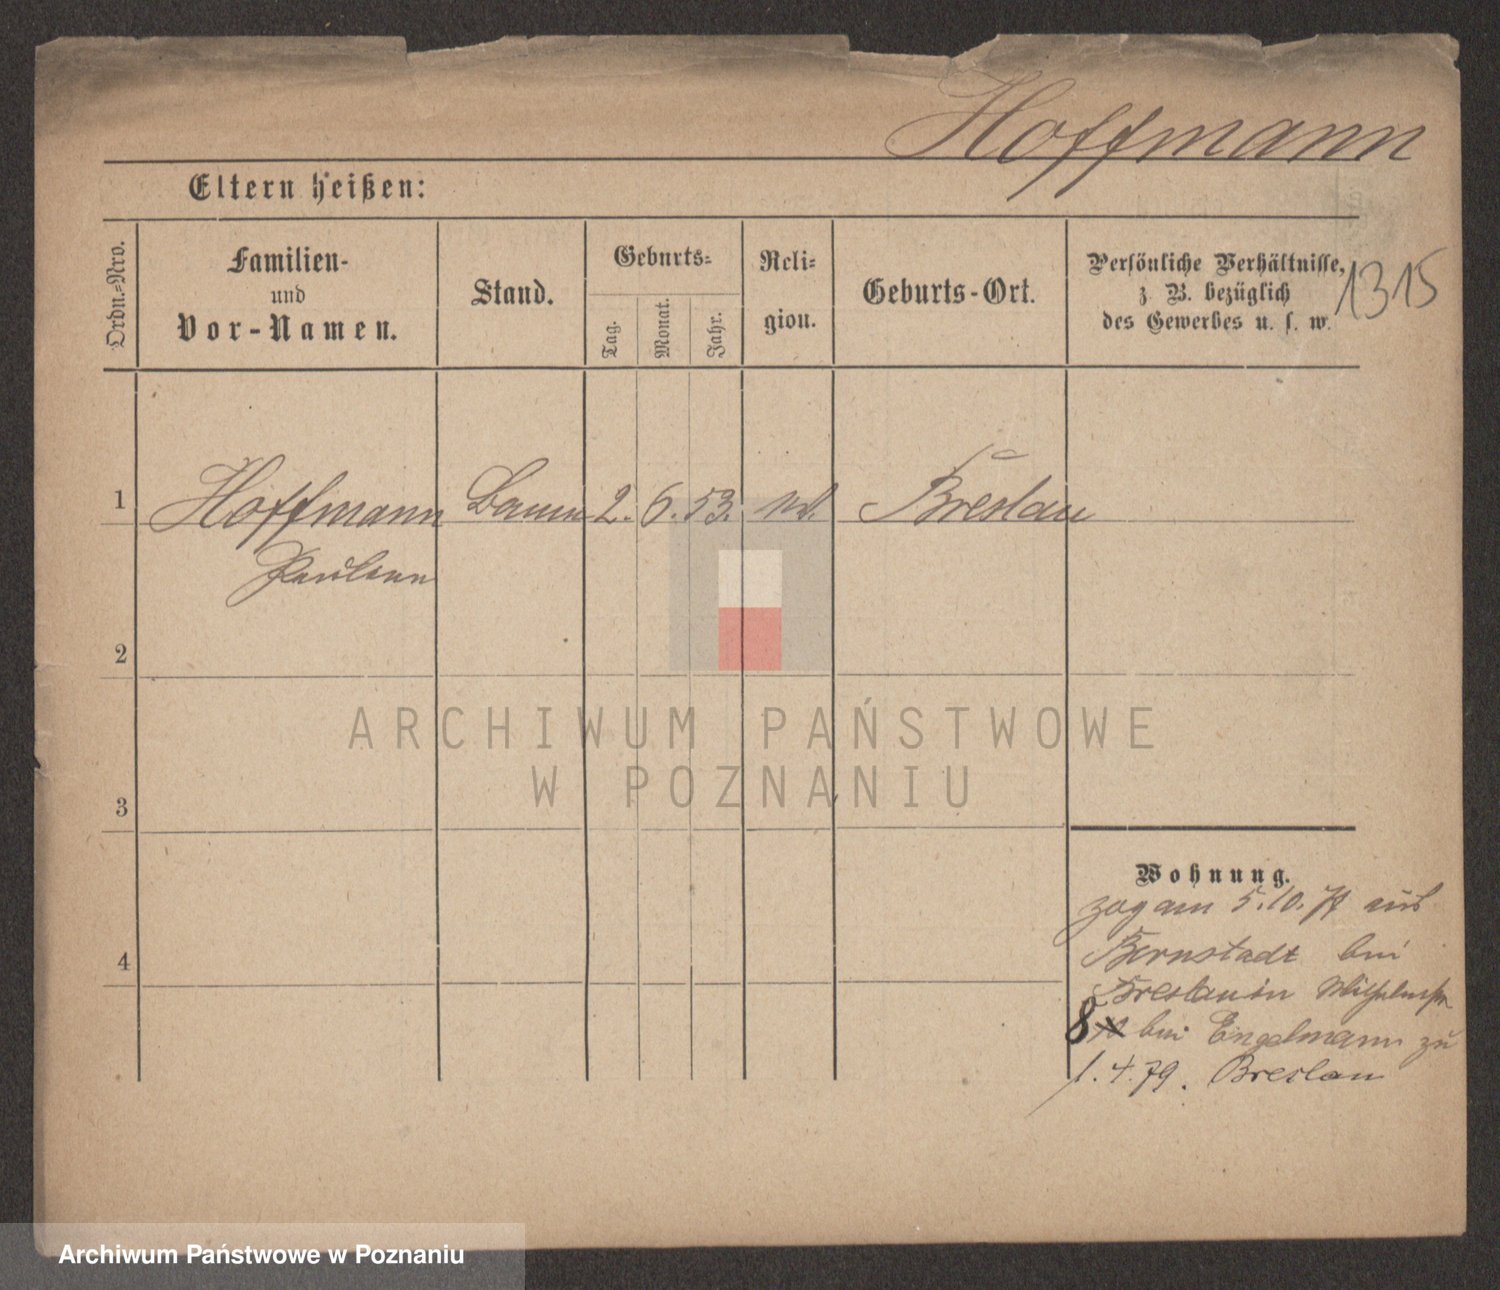 Hoffmann
Eltern heißen:
Ordn.-Nro.
Familien-
und
Vor-Namen.
Stand.
Geburts-
Tag.
Monat.
Jahr.
Reli-
gion.
Geburts-Ort.
Persönliche Verhältnisse,
z. B. bezüglich
des Gewerbes u. s. w.
1315
1 Hoffmann 2. 6. 53. Breslau
2
ARCHIWUM PAŃSTWOWE
W POZNANIU
3
Wohnung.
zog am 5. 10. aus
Bernstadt bei
Breslau in
8 bei Engelmann zu
4
1. 4. 79. Breslau
Archiwum Państwowe w Poznaniu